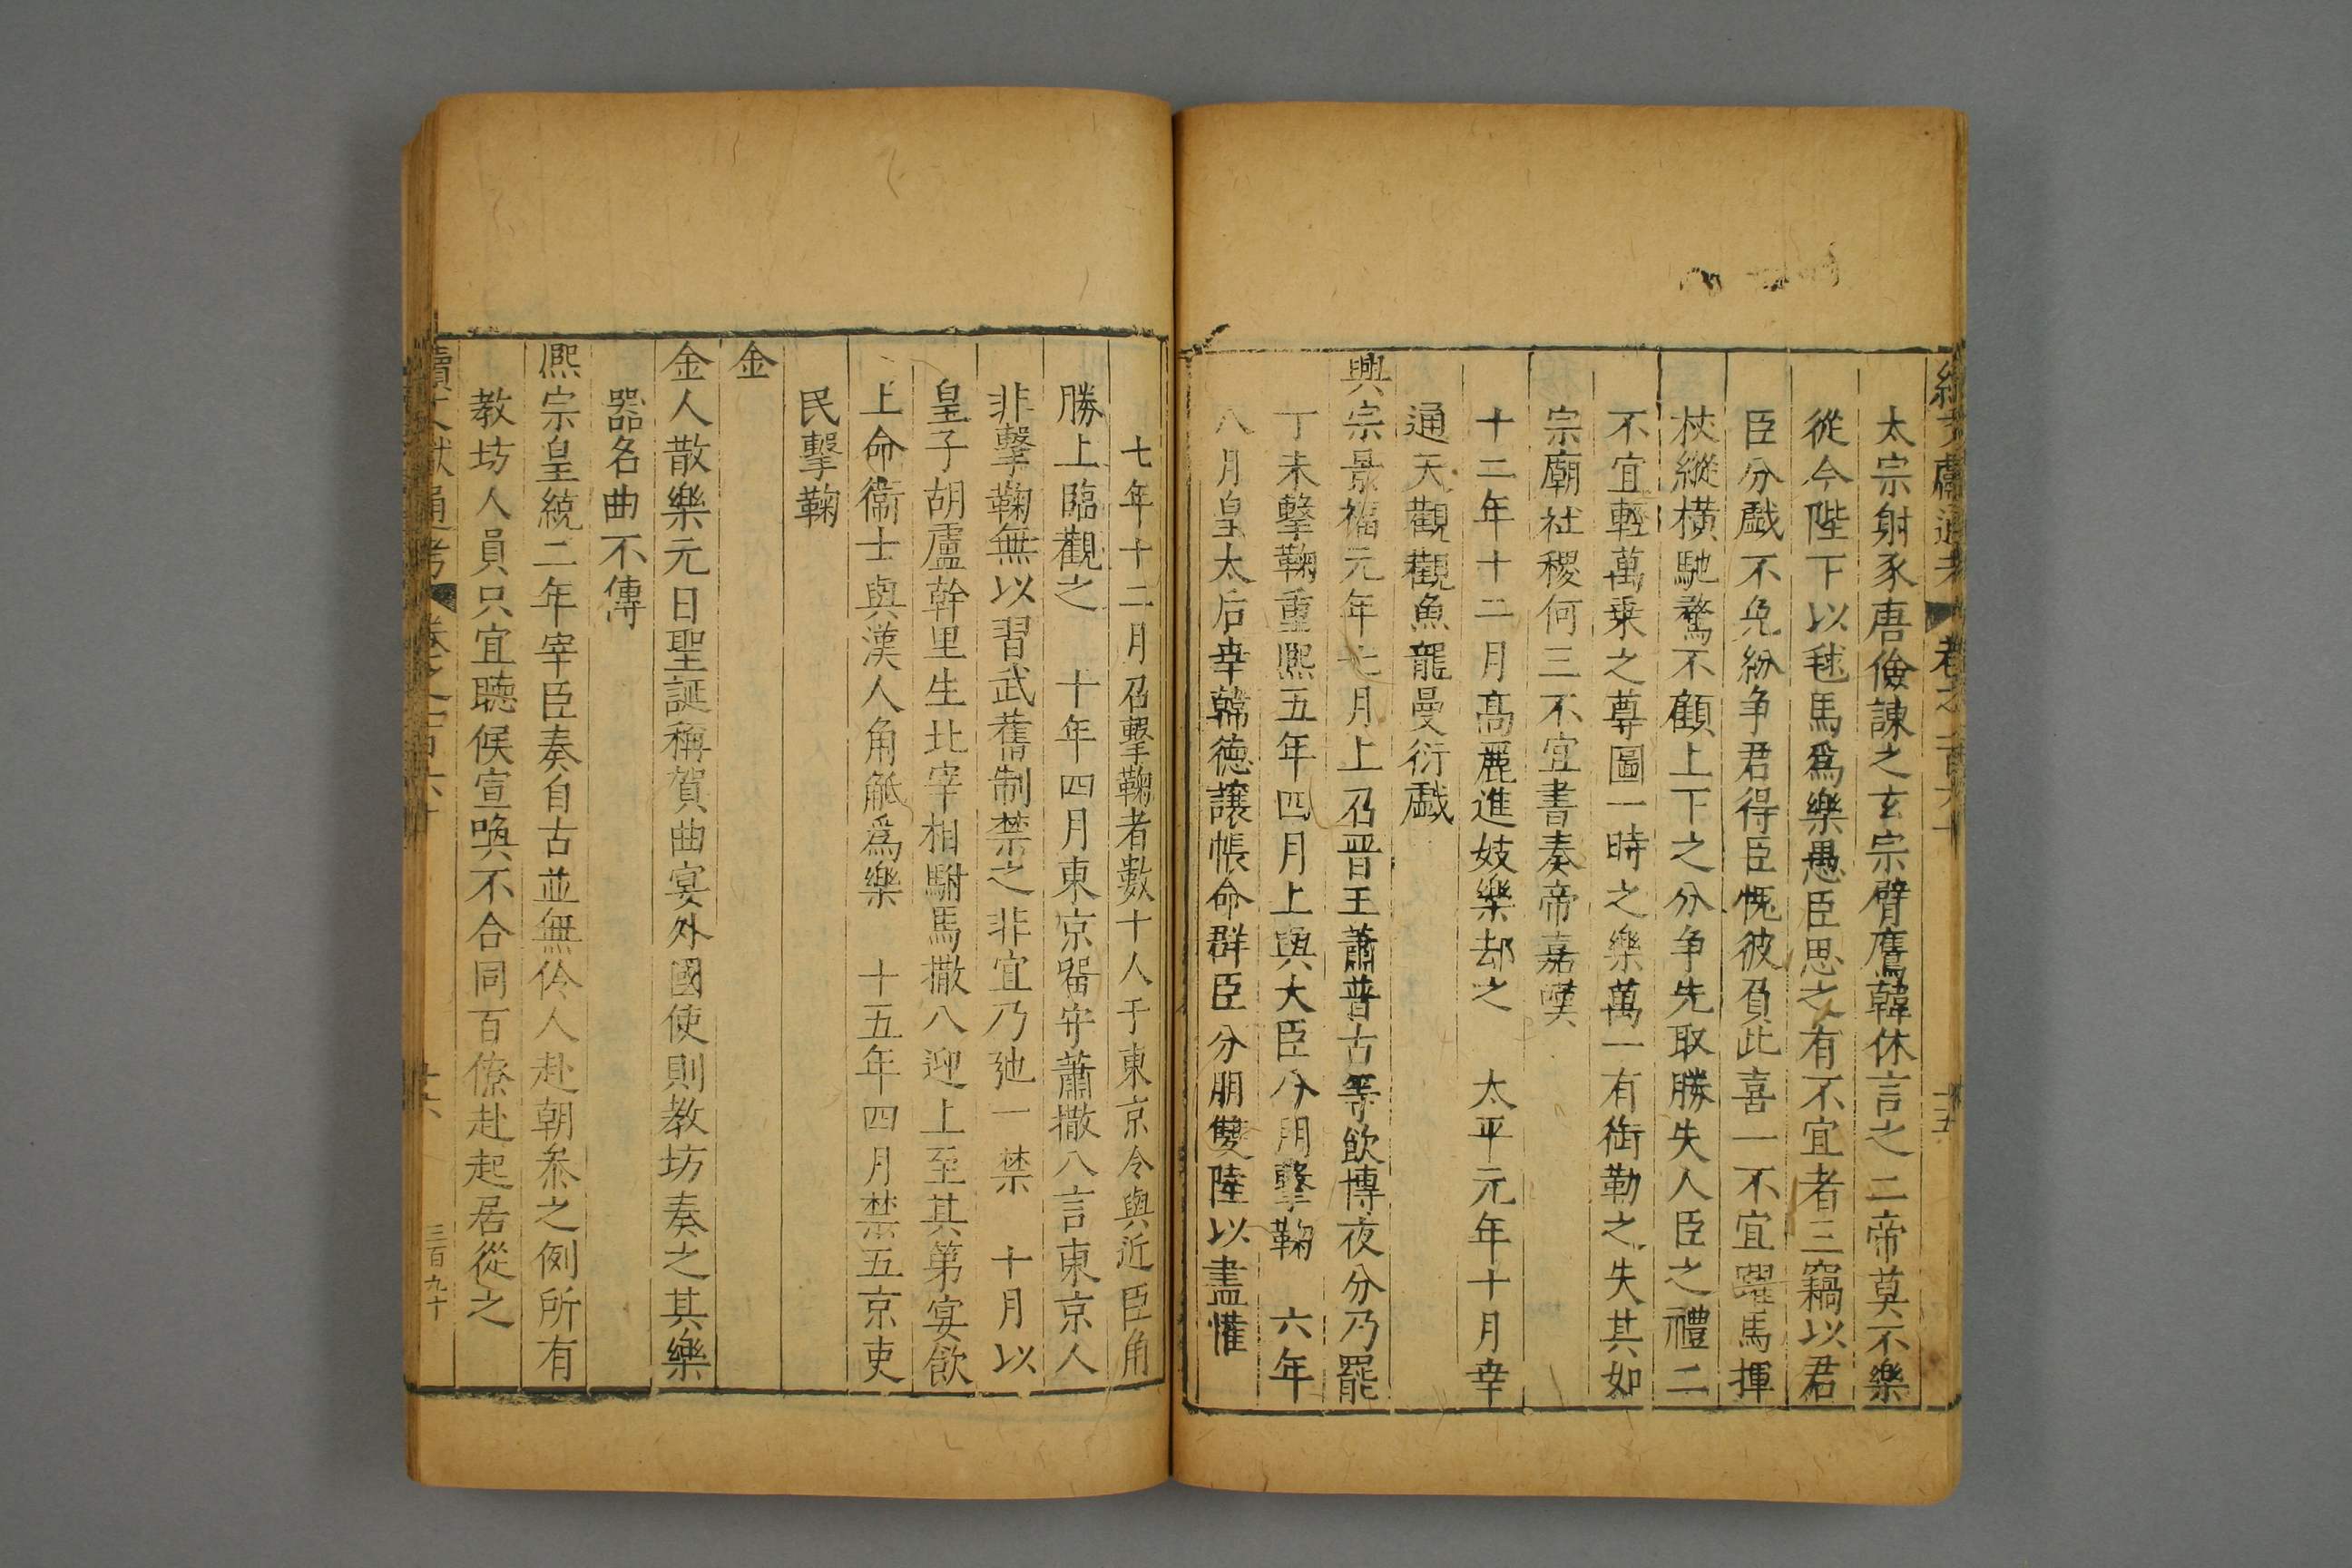 太宗射豕唐儉諫之玄宗臂鷹韓休言之二帝莫不樂
從今陛下以毬馬爲樂愚臣思之有不宜者三竊以君
臣分戱不免紛争君得臣愧彼負此喜一不宜躍馬揮
杖縱横馳騖不顧上下之分争先取勝失人臣之禮二
不宜輕萬乗之尊圖一時之樂萬一有銜勒之失其如
宗廟社稷何三不宜書奏帝嘉嘆
十二年十二月高麗進妓樂却之　太平元年十月幸
通天觀觀魚龍曼衍戱
興宗景福元年七月上召晋王蕭普古等飲博夜分乃罷
丁未擊鞠重熙五年四月上與大臣分朋擊鞠　六年
八月皇太后幸韓徳讓帳命群臣分朋雙陸以盡懽
七年十二月召擊鞠者數十人于東京令與近臣角
勝上臨觀之　十年四月東京留守蕭撒八言東京人
非擊鞠無以習武舊制禁之非宜乃弛一禁　十月以
皇子胡盧斡里生北宰相駙馬撒八迎上至其第宴飲
上命衞士與漢人角觝爲樂　十五年四月禁五京吏
民擊鞠
金
金人散樂元日聖誕稱賀曲宴外國使則教坊奏之其樂
器名曲不傳
熈宗皇統二年宰臣奏自古並無伶人赴朝叅之例所有
教坊人員只宜聴候宣喚不合同百僚赴起居從之
續文獻通考　卷之二百六十　十六　三百九十